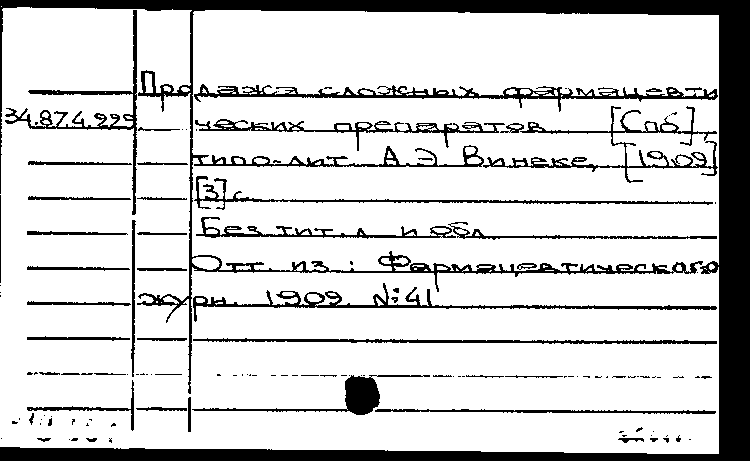 Продажа сложных фармацевти
34.87.4.229
ческих препаратов [Спб],
типо-лит. А.Э. Винеке, [1909]
[3] с.
Без тит. л. и обл.
Отт. из: Фармацевтического
журн. 1909. №41